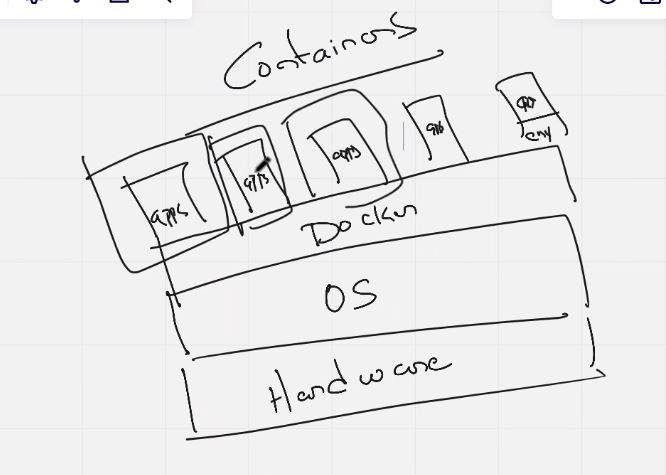 Containers
apps
apps
apps
app
app
env
Docker
OS
Hardware